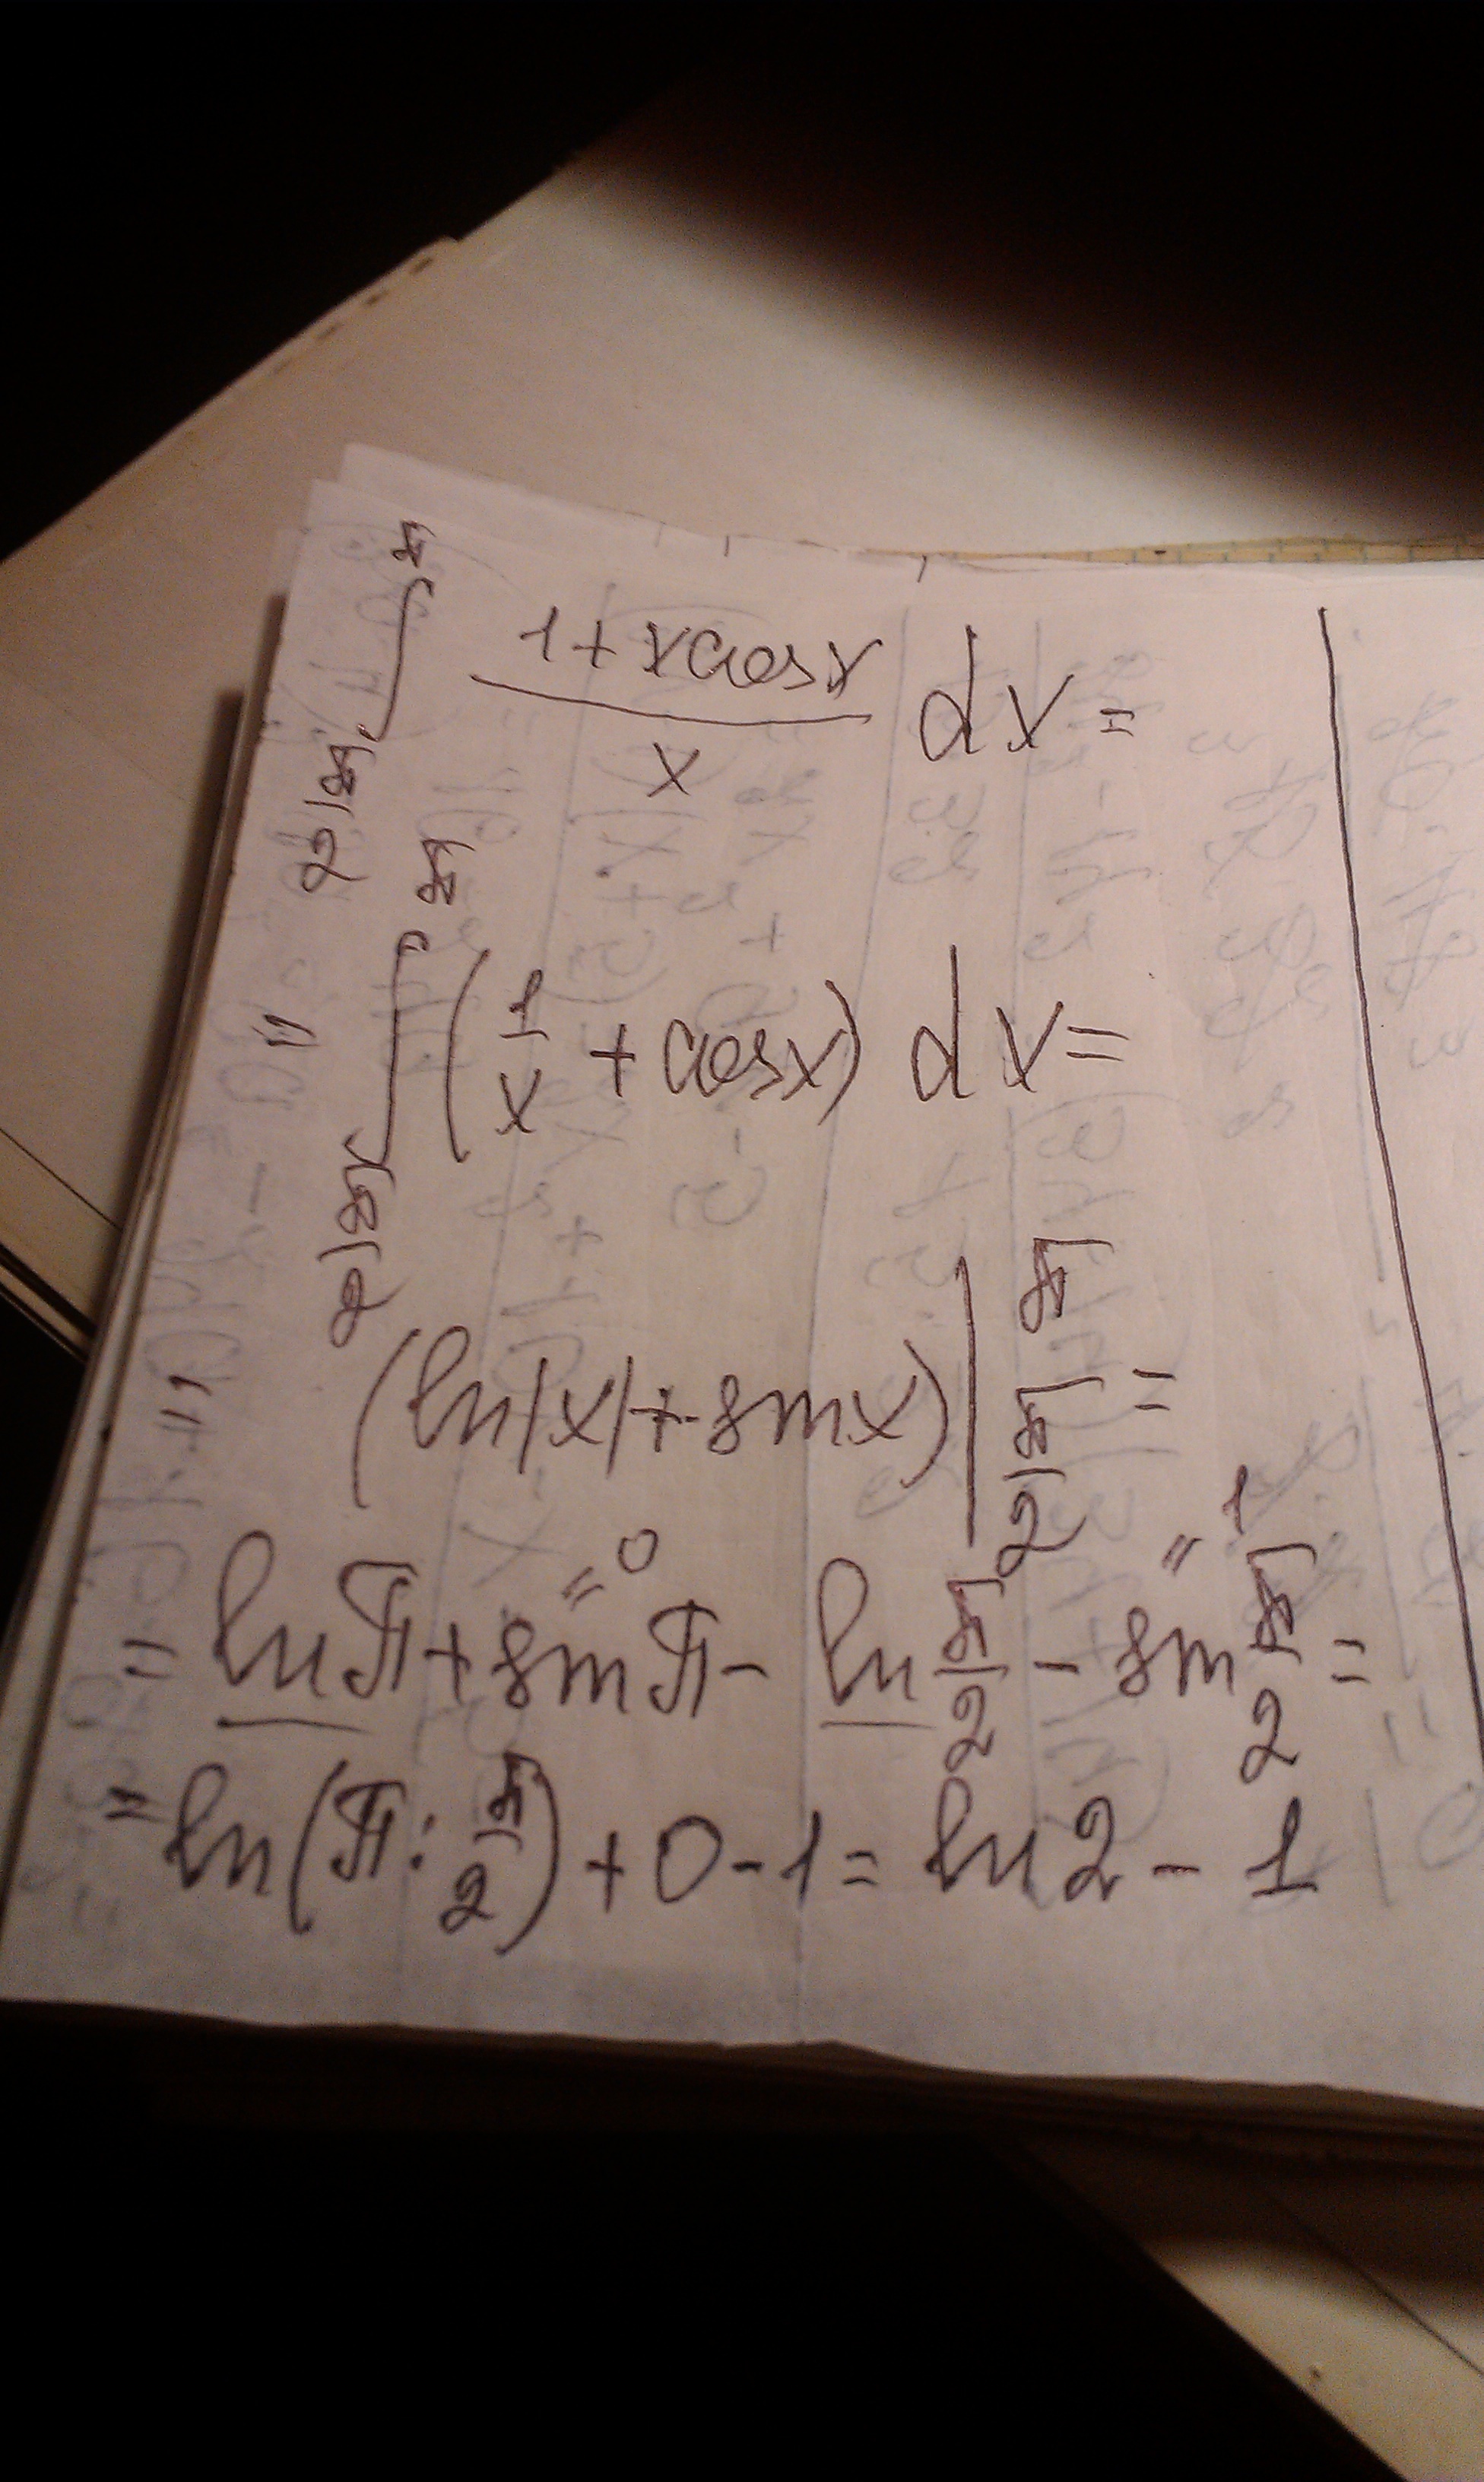 ∫_{π/2}^{π} (1 + x cos x)/x dx =
= ∫_{π/2}^{π} (1/x + cos x) dx =
= (ln|x| + sin x) |_{π/2}^{π} =
= ln π + sin π - ln π/2 - sin π/2 =
= ln(π : π/2) + 0 - 1 = ln 2 - 1